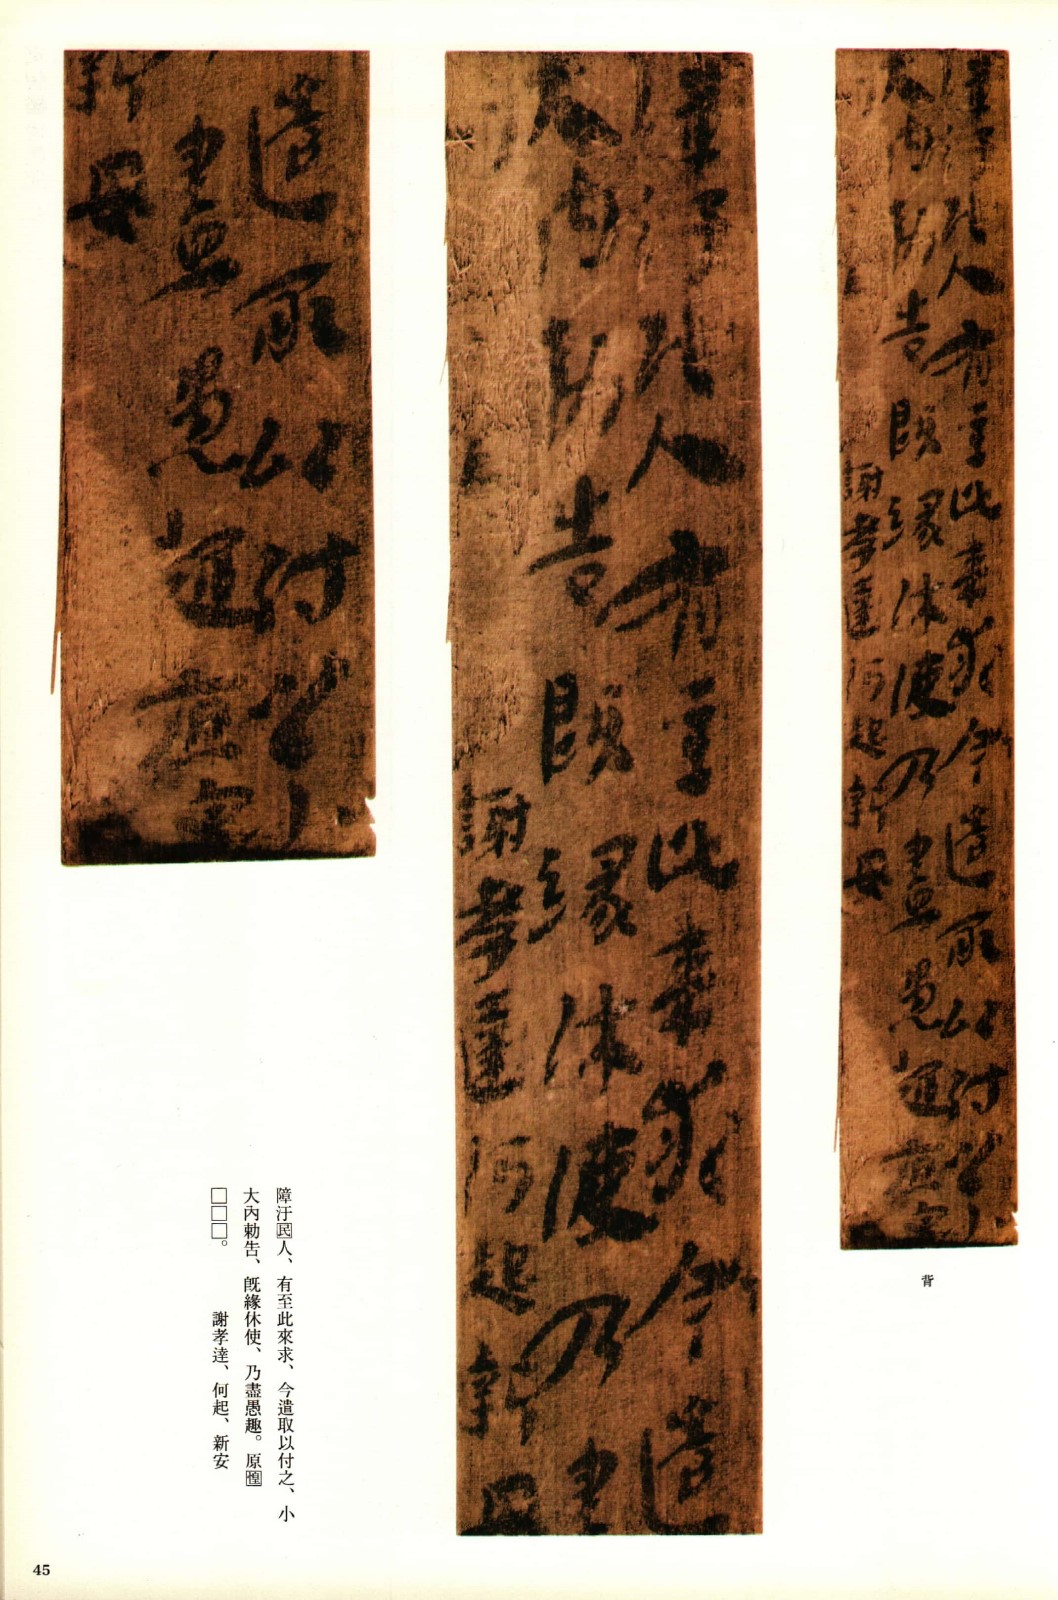 背
障汙民人、有至此來求、今遣取以付之、小
大內勅告、旣緣休使、乃盡愚趣。原惶
□□□。　　謝孝達、何起、新安
45